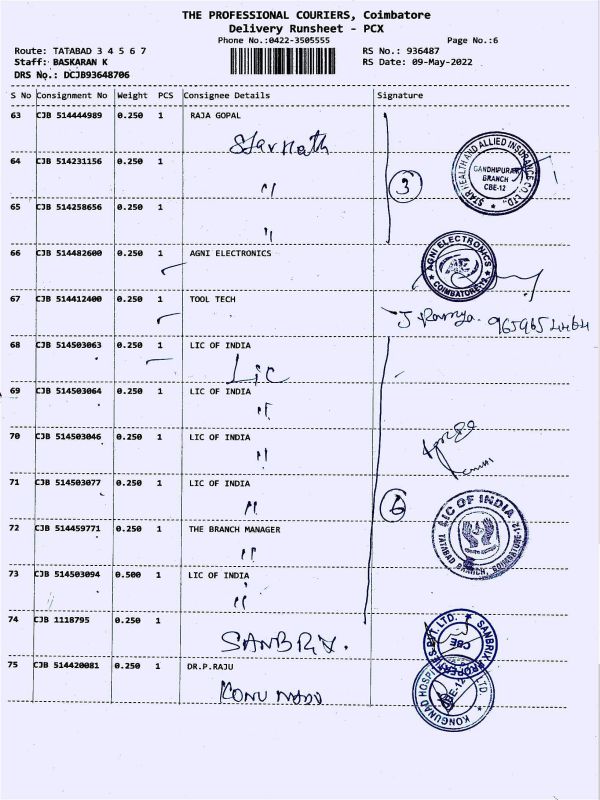 THE PROFESSIONAL COURIERS, Coimbatore
Delivery Runsheet - PCX
Phone No.:0422-3505555 Page No.:6
Route: TATABAD 3 4 5 6 7 RS No.: 936487
Staff: BASKARAN K RS Date: 09-May-2022
DRS No.: DCJB93648706
S No Consignment No Weight PCS Consignee Details Signature
63 CJB 514444989 0.250 1 RAJA GOPAL
64 CJB 514231156 0.250 1
"
3
STAR HEALTH AND ALLIED INSURANCE CO. LTD.,
GANDHIPURAM
BRANCH
CBE-12
65 CJB 514258656 0.250 1
"
66 CJB 514482600 0.250 1 AGNI ELECTRONICS
AGNI ELECTRONICS
COIMBATORE-12
67 CJB 514412400 0.250 1 TOOL TECH
J. Ramya.
68 CJB 514503063 0.250 1 LIC OF INDIA
LIC
69 CJB 514503064 0.250 1 LIC OF INDIA
"
70 CJB 514503046 0.250 1 LIC OF INDIA
"
71 CJB 514503077 0.250 1 LIC OF INDIA
"
6
LIC OF INDIA
TATABAD BRANCH, COIMBATORE-12.
72 CJB 514459771 0.250 1 THE BRANCH MANAGER
"
73 CJB 514503094 0.500 1 LIC OF INDIA
"
74 CJB 1118795 0.250 1
SANBRIX.
SANBRIX PROPERTIES PVT. LTD.
CBE
75 CJB 514420081 0.250 1 DR.P.RAJU
KONU NADU
KONGUNAD HOSPITAL LTD.
CBE-12